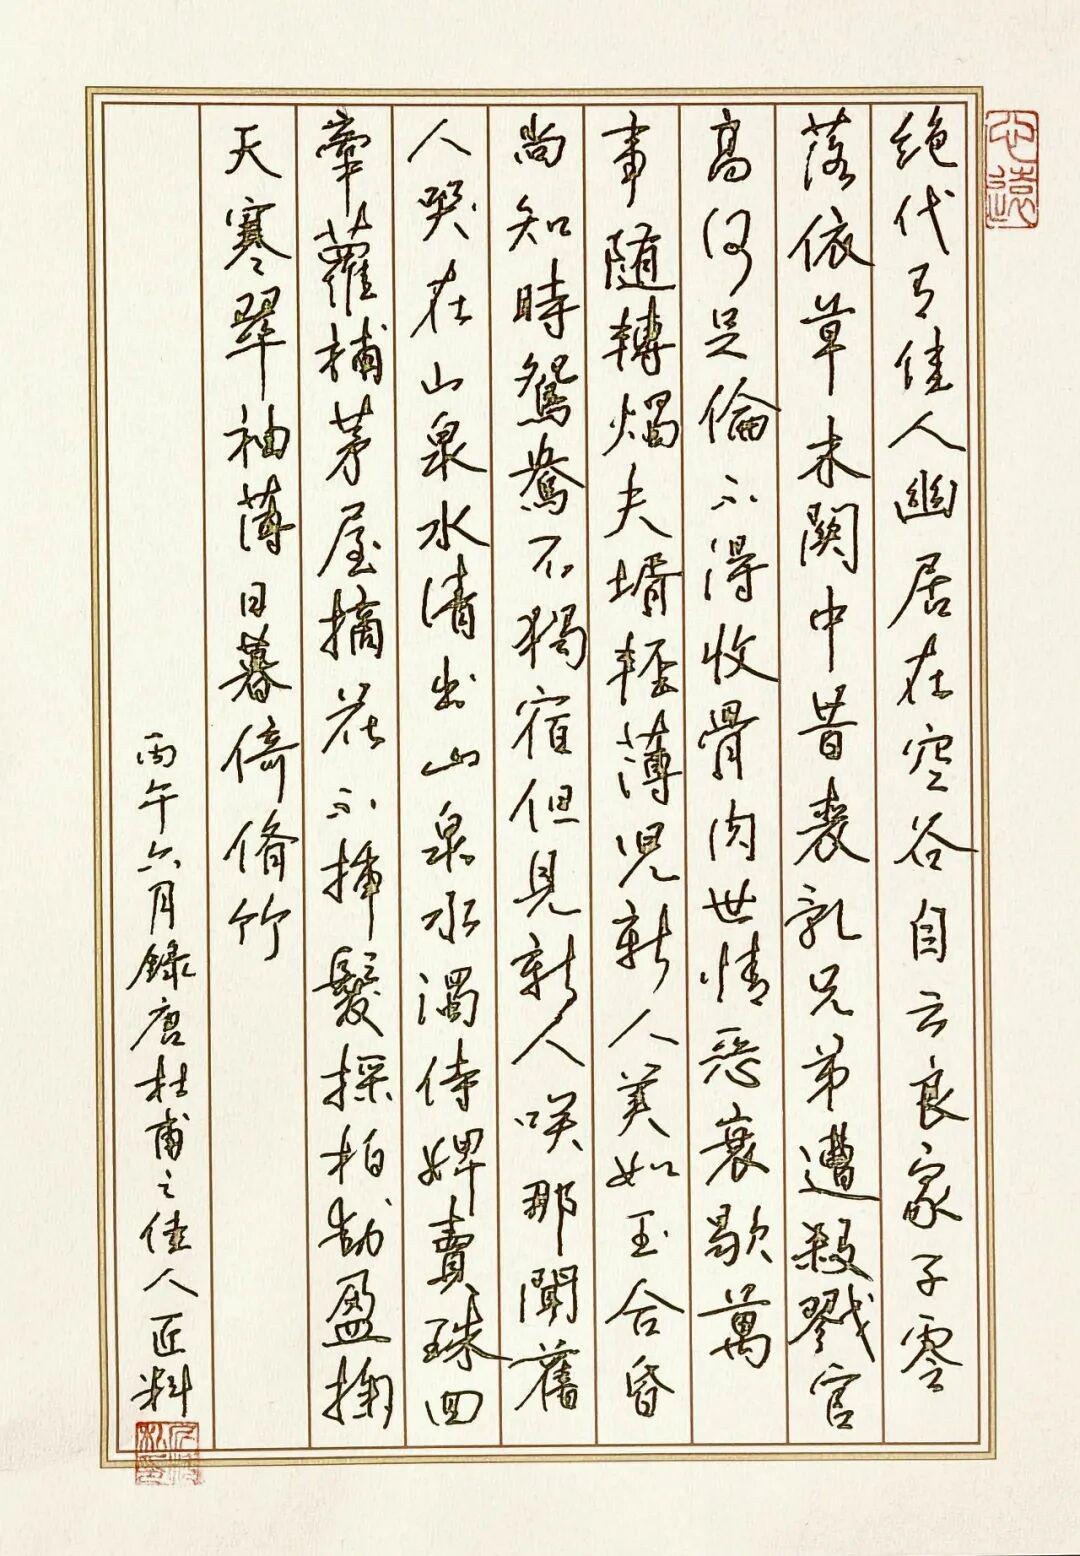 絶代有佳人幽居在空谷自云良家子零
落依草木關中昔喪亂兄弟遭殺戮官
高何足論不得收骨肉世情惡衰歇萬
事随轉燭夫壻輕薄兒新人美如玉合昏
尚知時鴛鴦不獨宿但見新人笑那聞舊
人哭在山泉水清出山泉水濁侍婢賣珠回
牽蘿補茅屋摘花不插髮採柏動盈掬
天寒翠袖薄日暮倚脩竹
丙午六月錄唐杜甫之佳人匠料
心遠